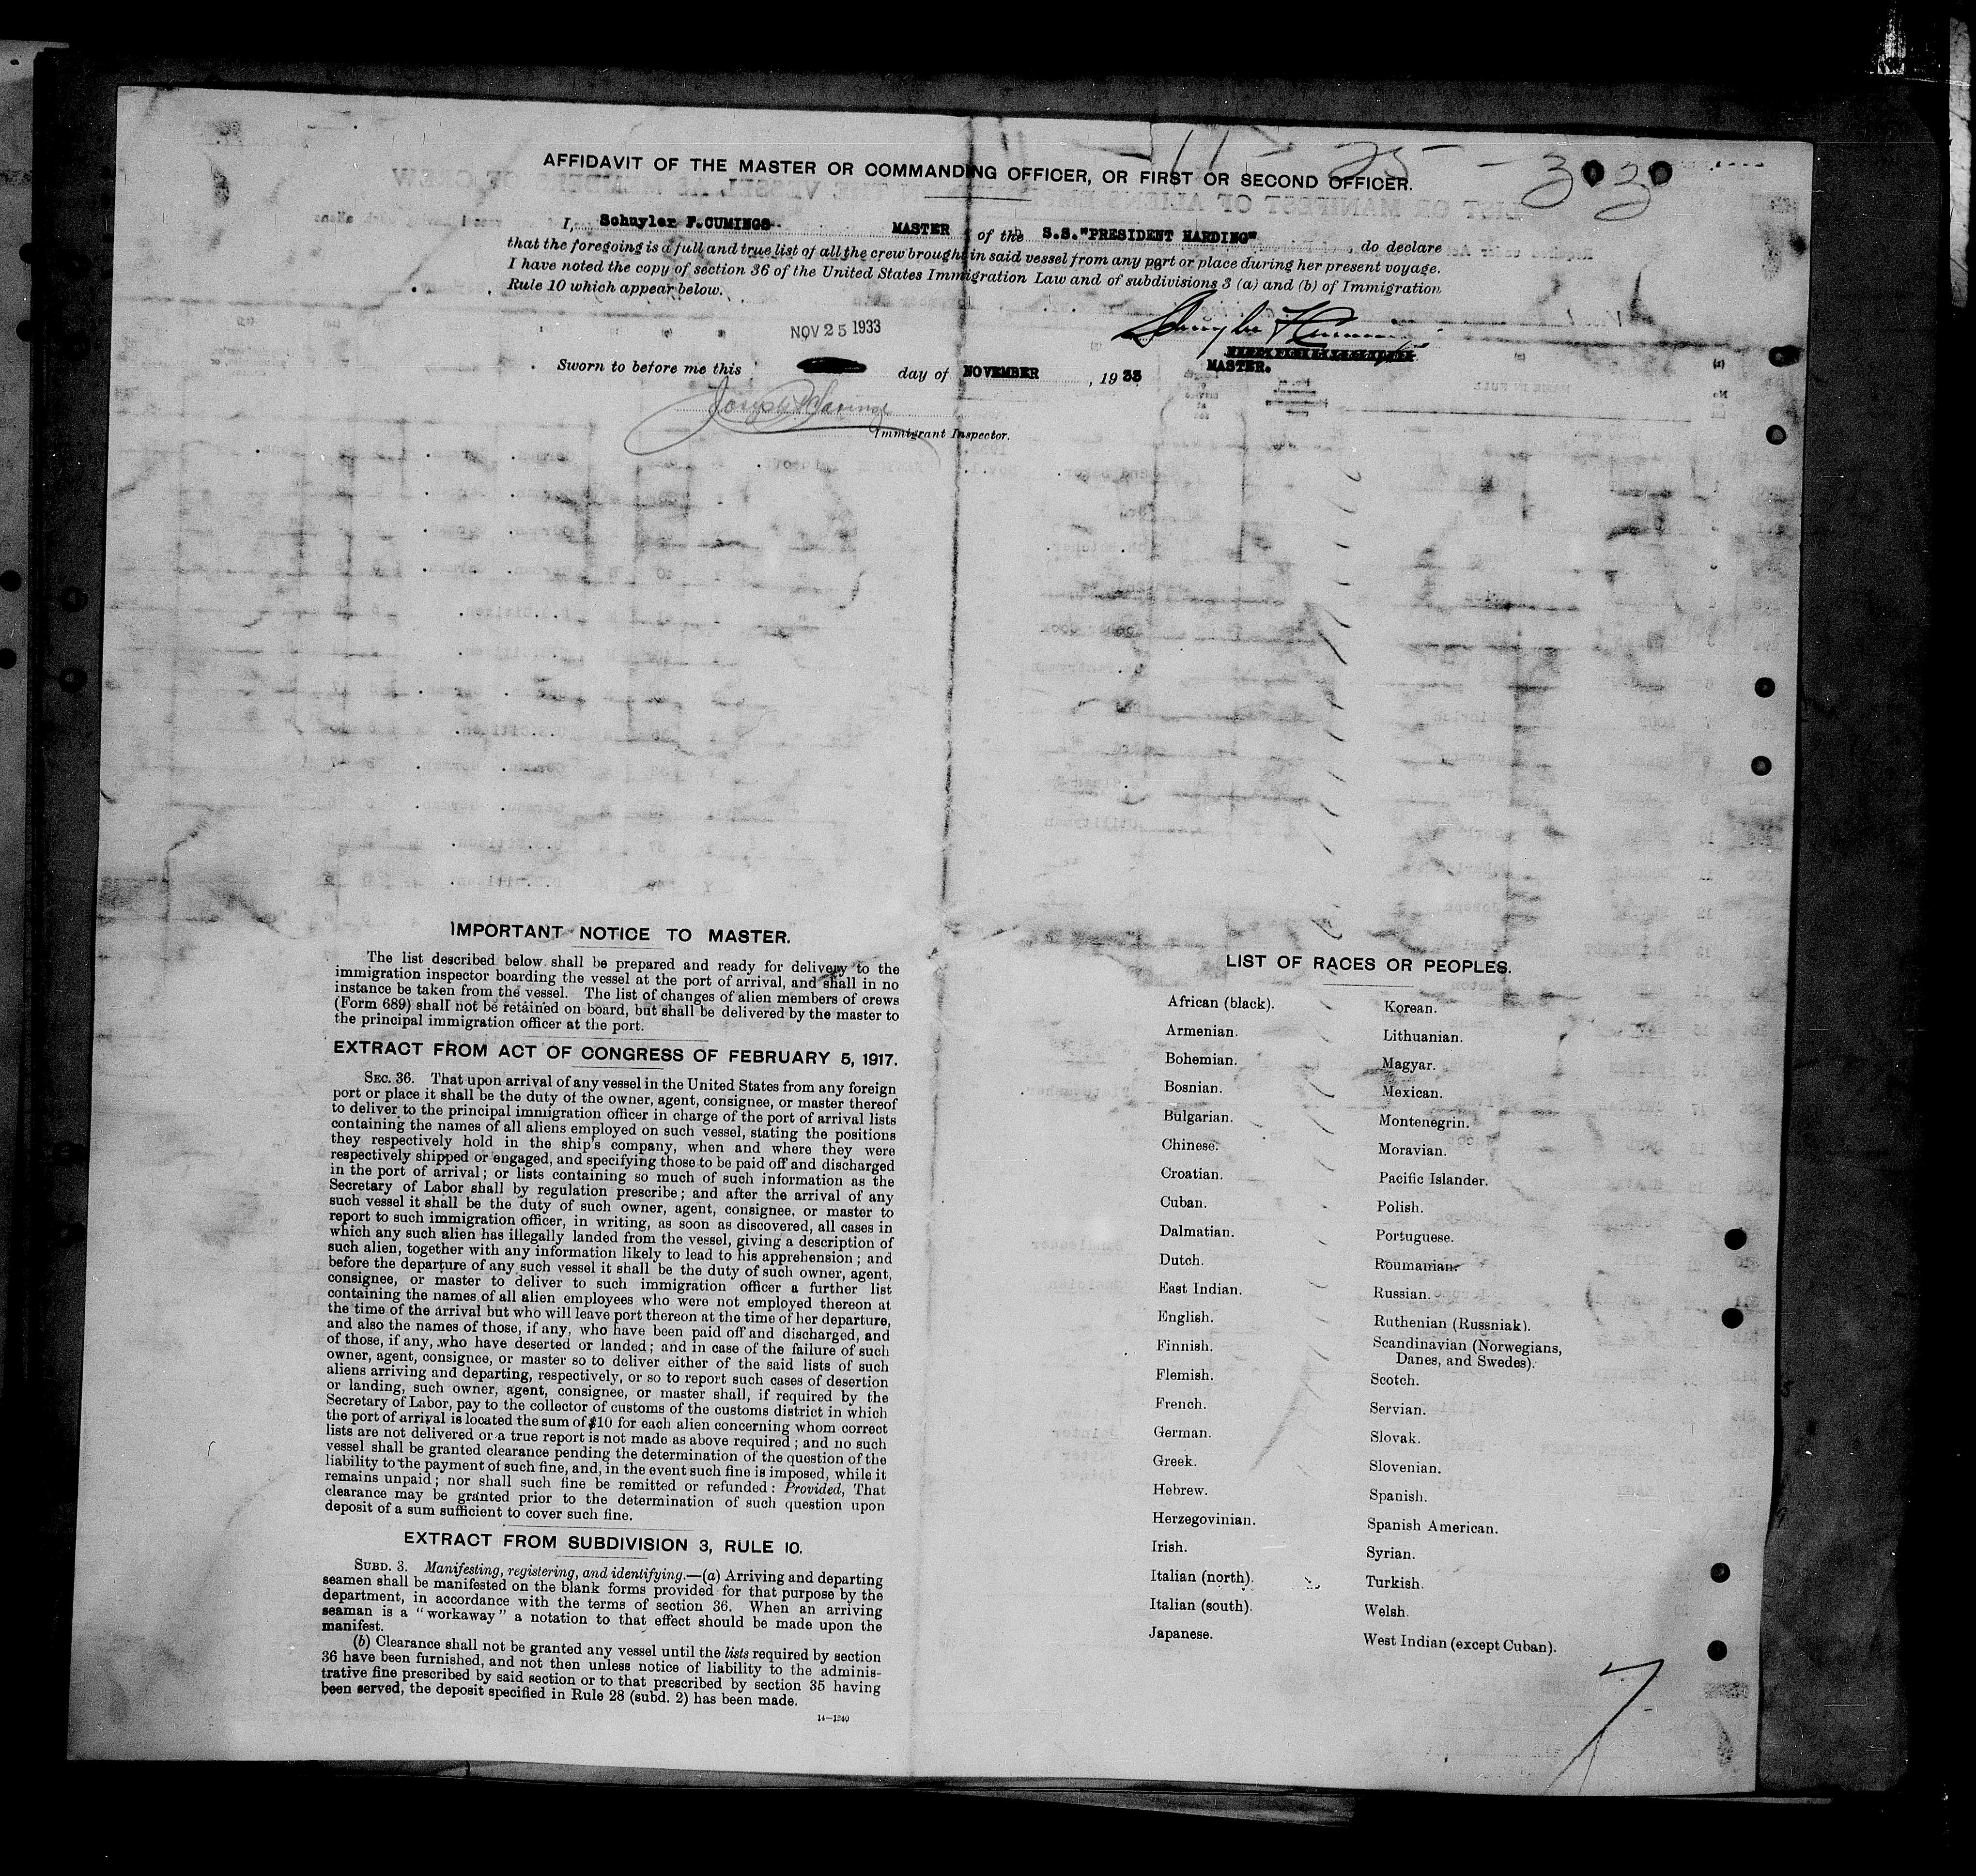 AFFIDAVIT OF THE MASTER OR COMMANDING OFFICER, OR FIRST OR SECOND OFFICER.
I, Schuyler F.CUMINGS. MASTER of the S.S."PRESIDENT HARDING", do declare
that the foregoing is a full and true list of all the crew brought in said vessel from any port or place during her present voyage.
I have noted the copy of section 36 of the United States Immigration Law and of subdivisions 3 (a) and (b) of Immigration
Rule 10 which appear below.
NOV 25 1933
MASTER.
Sworn to before me this day of NOVEMBER, 1933
Immigrant Inspector.
IMPORTANT NOTICE TO MASTER.
The list described below shall be prepared and ready for delivery to the
immigration inspector boarding the vessel at the port of arrival, and shall in no
instance be taken from the vessel. The list of changes of alien members of crews
(Form 689) shall not be retained on board, but shall be delivered by the master to
the principal immigration officer at the port.
EXTRACT FROM ACT OF CONGRESS OF FEBRUARY 5, 1917.
SEC. 36. That upon arrival of any vessel in the United States from any foreign
port or place it shall be the duty of the owner, agent, consignee, or master thereof
to deliver to the principal immigration officer in charge of the port of arrival lists
containing the names of all aliens employed on such vessel, stating the positions
they respectively hold in the ship's company, when and where they were
respectively shipped or engaged, and specifying those to be paid off and discharged
in the port of arrival; or lists containing so much of such information as the
Secretary of Labor shall by regulation prescribe; and after the arrival of any
such vessel it shall be the duty of such owner, agent, consignee, or master to
report to such immigration officer, in writing, as soon as discovered, all cases in
which any such alien has illegally landed from the vessel, giving a description of
such alien, together with any information likely to lead to his apprehension; and
before the departure of any such vessel it shall be the duty of such owner, agent,
consignee, or master to deliver to such immigration officer a further list
containing the names of all alien employees who were not employed thereon at
the time of the arrival but who will leave port thereon at the time of her departure,
and also the names of those, if any, who have been paid off and discharged, and
of those, if any, who have deserted or landed; and in case of the failure of such
owner, agent, consignee, or master so to deliver either of the said lists of such
aliens arriving and departing, respectively, or so to report such cases of desertion
or landing, such owner, agent, consignee, or master shall, if required by the
Secretary of Labor, pay to the collector of customs of the customs district in which
the port of arrival is located the sum of $10 for each alien concerning whom correct
lists are not delivered or a true report is not made as above required; and no such
vessel shall be granted clearance pending the determination of the question of the
liability to the payment of such fine, and, in the event such fine is imposed, while it
remains unpaid; nor shall such fine be remitted or refunded: Provided, That
clearance may be granted prior to the determination of such question upon
deposit of a sum sufficient to cover such fine.
EXTRACT FROM SUBDIVISION 3, RULE 10.
SUBD. 3. Manifesting, registering, and identifying.—(a) Arriving and departing
seamen shall be manifested on the blank forms provided for that purpose by the
department, in accordance with the terms of section 36. When an arriving
seaman is a "workaway" a notation to that effect should be made upon the
manifest.
(b) Clearance shall not be granted any vessel until the lists required by section
36 have been furnished, and not then unless notice of liability to the adminis-
trative fine prescribed by said section or to that prescribed by section 35 having
been served, the deposit specified in Rule 28 (subd. 2) has been made.
14—1240
LIST OF RACES OR PEOPLES.
African (black).
Armenian.
Bohemian.
Bosnian.
Bulgarian.
Chinese.
Croatian.
Cuban.
Dalmatian.
Dutch.
East Indian.
English.
Finnish.
Flemish.
French.
German.
Greek.
Hebrew.
Herzegovinian.
Irish.
Italian (north).
Italian (south).
Japanese.
Korean.
Lithuanian.
Magyar.
Mexican.
Montenegrin.
Moravian.
Pacific Islander.
Polish.
Portuguese.
Roumanian.
Russian.
Ruthenian (Russniak).
Scandinavian (Norwegians,
Danes, and Swedes).
Scotch.
Servian.
Slovak.
Slovenian.
Spanish.
Spanish American.
Syrian.
Turkish.
Welsh.
West Indian (except Cuban).